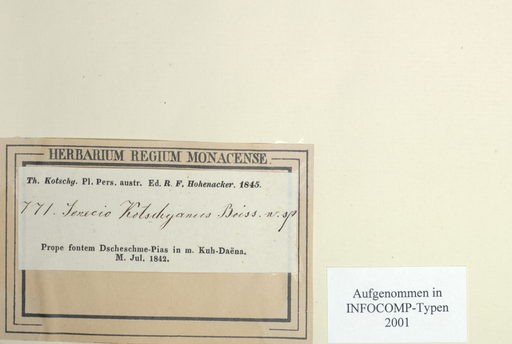 HERBARIUM REGIUM MONACENSE.
Th. Kotschy. Pl. Pers. austr. Ed. R. F. Hohenacker. 1845.
771. Senecio Kotschyanus Boiss. n. sp
Prope fontem Dscheschme-Pias in m. Kuh-Daëna.
M. Jul. 1842.
Aufgenommen in
INFOCOMP-Typen
2001